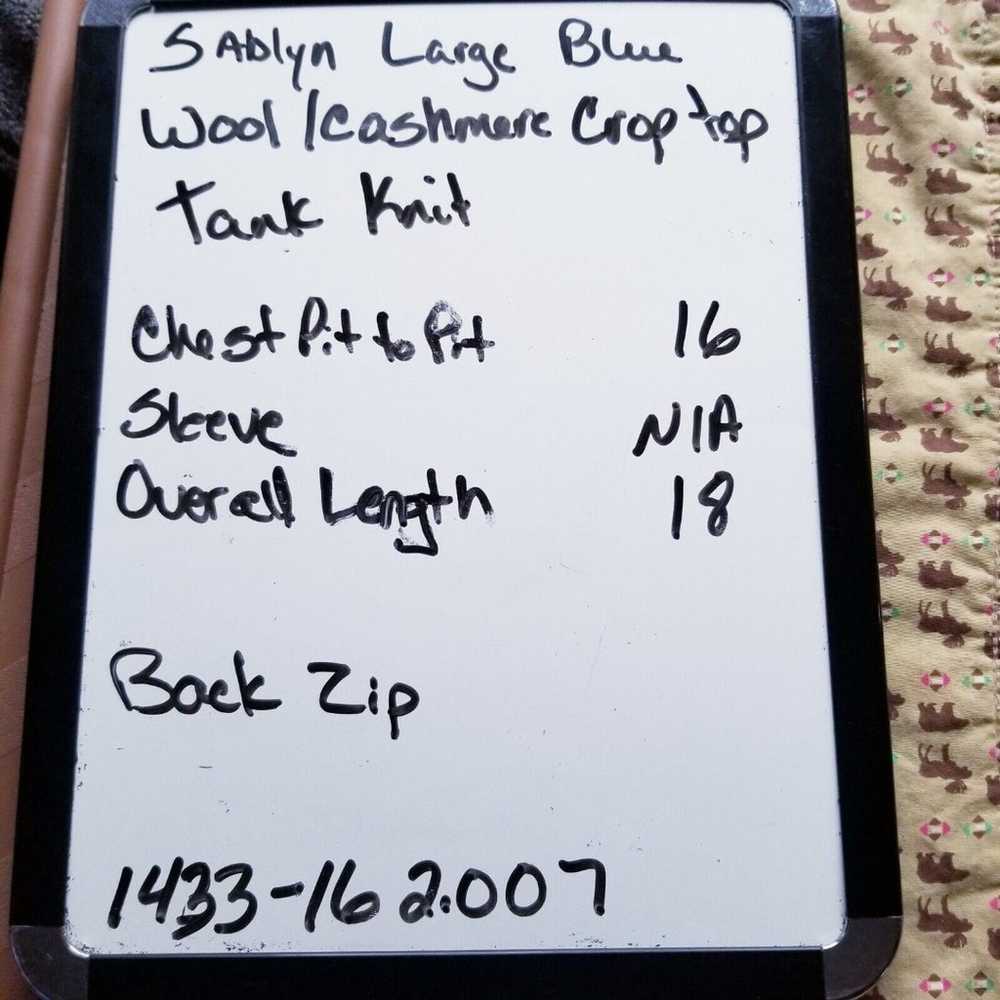 SAblyn Large Blue
Wool/Cashmere Crop top
Tank Knit
Chest Pit to Pit 16
Sleeve N/A
Overall Length 18
Back Zip
1433-162007